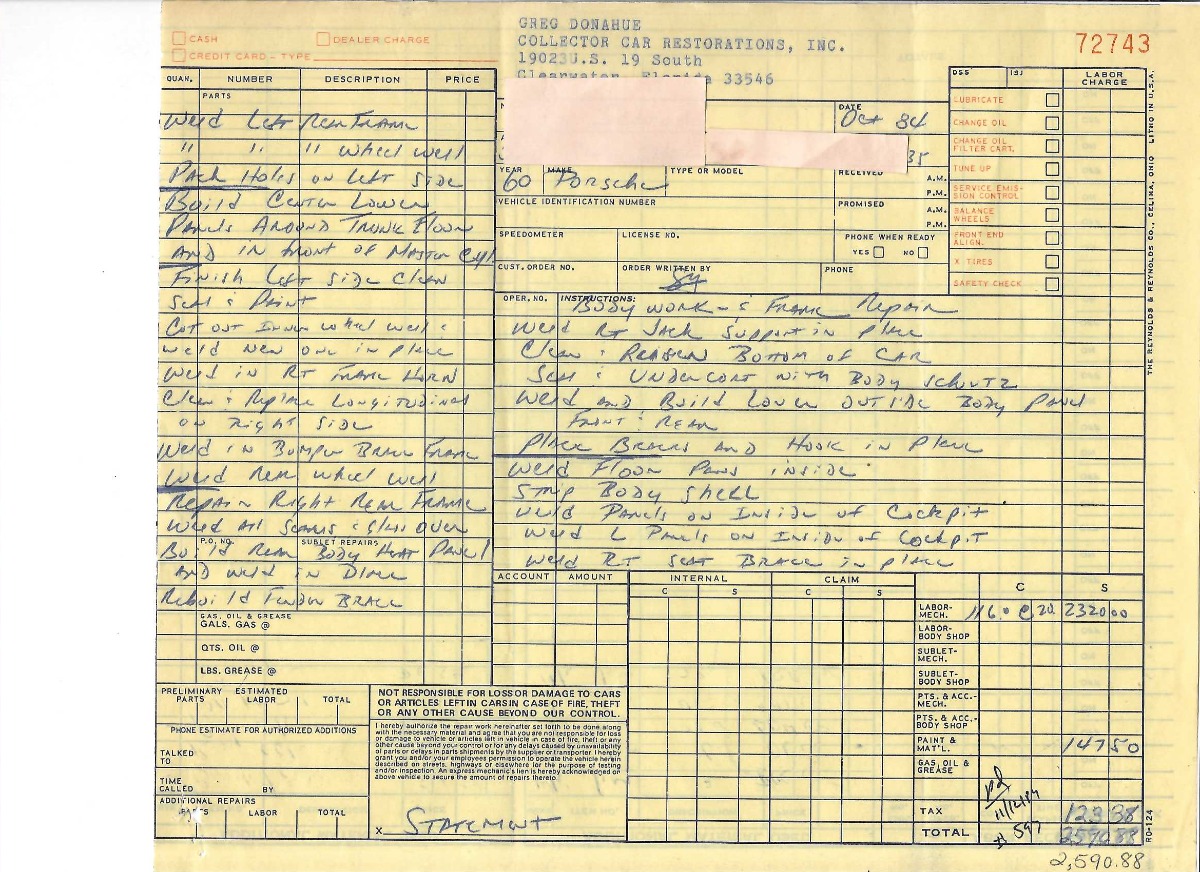 CASH
DEALER CHARGE
CREDIT CARD - TYPE
GREG DONAHUE
COLLECTOR CAR RESTORATIONS, INC.
19023U.S. 19 South
Clearwater, Florida 33546
72743
QUAN. NUMBER DESCRIPTION PRICE
PARTS
Weld Left Rear Frame
" " " Wheel well
Patch Holes on Left Side
Build Center Lower
Panels Around Trunk Floor
And in front of Master Cyl.
Finish Left Side Clean
Seal & Paint
Cut out Inner wheel well &
weld new one in place
Weld in RT Frame Horn
Clean & Replace Longitudinal
on Right Side
Weld in Bumper Brace Frame
Weld Rear wheel well
Repair Right Rear Frame
Weld all Seams & Glass Over
P.O. NO. SUBLET REPAIRS
Build Rear Body Heat Panel
And weld in Place
Rebuild Fender Brace
GAS, OIL & GREASE
GALS. GAS @
QTS. OIL @
LBS. GREASE @
DATE
Oct 84
35
YEAR
60
MAKE
Porsche
TYPE OR MODEL
RECEIVED
A.M.
P.M.
VEHICLE IDENTIFICATION NUMBER
PROMISED
A.M.
P.M.
SPEEDOMETER
LICENSE NO.
PHONE WHEN READY
YES NO
CUST. ORDER NO.
ORDER WRITTEN BY
PHONE
LABOR CHARGE
LUBRICATE
CHANGE OIL
CHANGE OIL FILTER CART.
TUNE UP
SERVICE EMISSION CONTROL
BALANCE WHEELS
FRONT END ALIGN.
X TIRES
SAFETY CHECK
OPER. NO. INSTRUCTIONS:
Body work - & Frame Repair
Weld RT Jack Support in place
Clean & Bottom of Car
Seal & Undercoat with Body Schutz
Weld and Build Lower Outside Body Panel
Front & Rear
Place Braces and Hook in Place
Weld Floor Pans inside
Strip Body Shell
Weld Panels on Inside of Cockpit
Weld L Panels on Inside of Cockpit
Weld RT Seat Brace in place
ACCOUNT AMOUNT
INTERNAL
C S
CLAIM
C S
C S
LABOR-MECH. 116.0 @ 20. 2320 00
LABOR-BODY SHOP
SUBLET-MECH.
SUBLET-BODY SHOP
PTS. & ACC.-MECH.
PTS. & ACC.-BODY SHOP
PAINT & MAT'L. 147 50
GAS, OIL & GREASE
TAX 123 38
TOTAL 2590 88
2,590.88
pd
11/12/84
# 597
PRELIMINARY ESTIMATED
PARTS LABOR TOTAL
PHONE ESTIMATE FOR AUTHORIZED ADDITIONS
TALKED TO
TIME CALLED BY
ADDITIONAL REPAIRS
PARTS LABOR TOTAL
NOT RESPONSIBLE FOR LOSS OR DAMAGE TO CARS
OR ARTICLES LEFT IN CARS IN CASE OF FIRE, THEFT
OR ANY OTHER CAUSE BEYOND OUR CONTROL.
I hereby authorize the repair work hereinafter set forth to be done along
with the necessary material and agree that you are not responsible for loss
or damage to vehicle or articles left in vehicle in case of fire, theft or any
other cause beyond your control or for any delays caused by unavailability
of parts or delays in parts shipments by the supplier or transporter. I hereby
grant you and/or your employees permission to operate the vehicle herein
described on streets, highways or elsewhere for the purpose of testing
and/or inspection. An express mechanic's lien is hereby acknowledged on
above vehicle to secure the amount of repairs thereto.
X Statement
THE REYNOLDS & REYNOLDS CO., CELINA, OHIO LITHO IN U.S.A.
RO-124